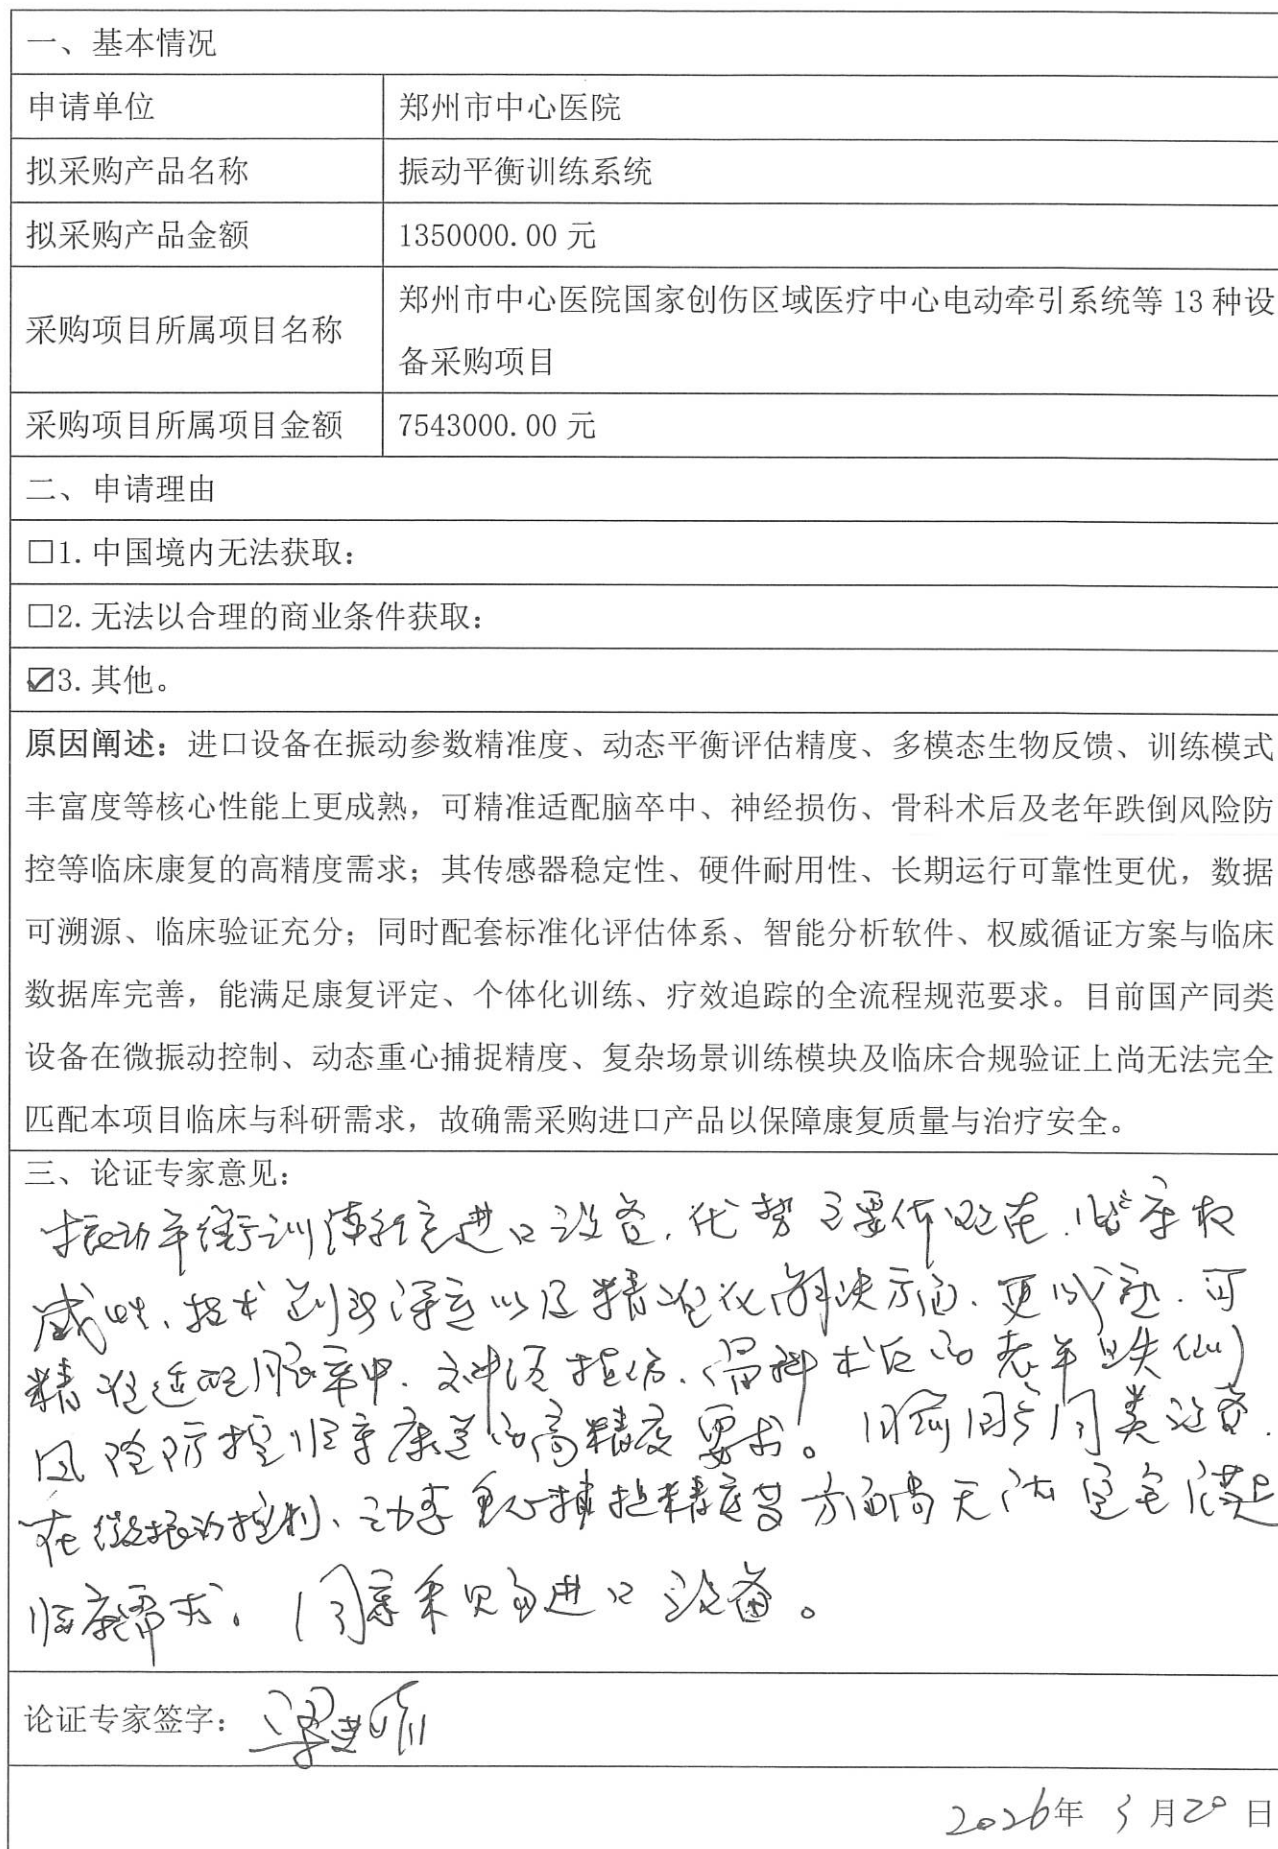 一、基本情况
申请单位
郑州市中心医院
拟采购产品名称
振动平衡训练系统
拟采购产品金额
1350000.00 元
采购项目所属项目名称
郑州市中心医院国家创伤区域医疗中心电动牵引系统等 13 种设
备采购项目
采购项目所属项目金额
7543000.00 元
二、申请理由
□1. 中国境内无法获取：
□2. 无法以合理的商业条件获取：
☑3. 其他。
原因阐述：进口设备在振动参数精准度、动态平衡评估精度、多模态生物反馈、训练模式
丰富度等核心性能上更成熟，可精准适配脑卒中、神经损伤、骨科术后及老年跌倒风险防
控等临床康复的高精度需求；其传感器稳定性、硬件耐用性、长期运行可靠性更优，数据
可溯源、临床验证充分；同时配套标准化评估体系、智能分析软件、权威循证方案与临床
数据库完善，能满足康复评定、个体化训练、疗效追踪的全流程规范要求。目前国产同类
设备在微振动控制、动态重心捕捉精度、复杂场景训练模块及临床合规验证上尚无法完全
匹配本项目临床与科研需求，故确需采购进口产品以保障康复质量与治疗安全。
三、论证专家意见：
振动平衡训练系统进口设备，优势主要体现在，临床权
威性、技术深度以及精准化解决方面、更成熟．可
精准适配脑卒中．神经损伤．骨科术后的老年跌倒
风险防控临床康复的高精度要求。目前国产同类设备．
在微振动控制、动态重心捕捉精度等方面尚无法完全满足
临床需求，同意采购进口设备。
论证专家签字：
2026年 3 月20 日